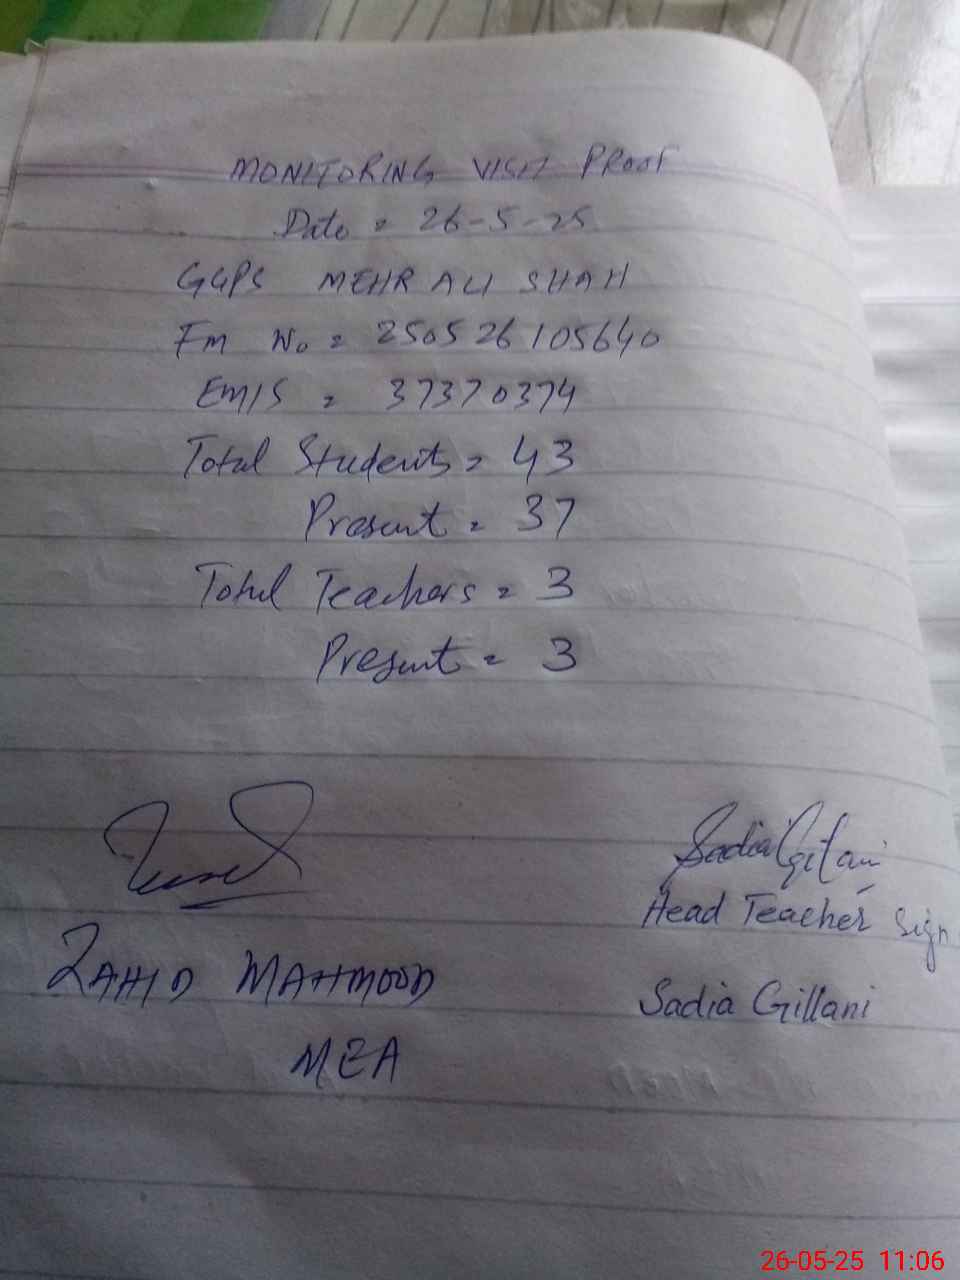 MONITORING VISIT PROOF
Date = 26-5-25
GGPS MEHR ALI SHAH
Fm No = 250526105640
EMIS = 37370374
Total Students = 43
Present = 37
Total Teachers = 3
Present = 3
Sadia Gilani
Head Teacher Sign
ZAHID MAHMOOD
Sadia Gillani
MEA
26-05-25 11:06